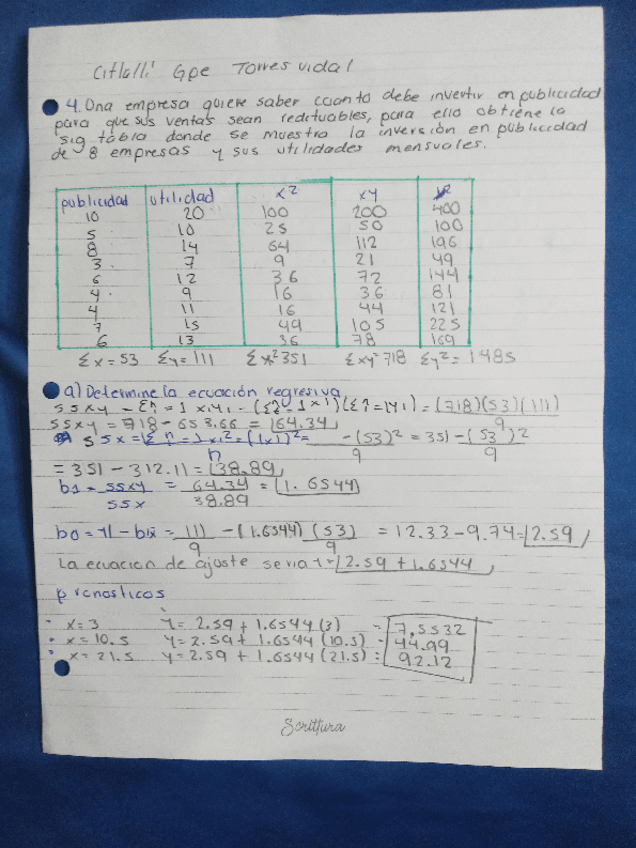 Citlalli Gpe Torres vidal
4. Una empresa quiere saber cuanto debe invertir en publicidad
para que sus ventas sean redituables, para ello obtiene la
sig tabla donde se muestra la inversión en publicidad
de 8 empresas y sus utilidades mensuales.
publicidad utilidad x² xy y²
10 20 100 200 400
5 10 25 50 100
8 14 64 112 196
3 7 9 21 49
6 12 36 72 144
4 9 16 36 81
4 11 16 44 121
7 15 49 105 225
6 13 36 78 169
Σx=53 Σy=111 Σx²351 Σxy=718 Σy²=1485
a) Determine la ecuación regresiva
ssxy - Σn=1 xiyi - (Σn=1 xi)(Σn=1yi) = (718)(53)(111)
9
ssxy = 718 - 653.66 = 64.34
ssx = Σn=1x1² = (1x1)² = -(53)² = 351 - (53)²
n 9 9
= 351 - 312.11 = 38.89
b1 = ssxy = 64.34 = 1.6544
ssx 38.89
b0 = y1 - b1x = 111 - (1.6544) (53) = 12.33 - 9.74 = 2.59
9 9
La ecuacion de ajuste seria Y= 2.59 + 1.6544
pronosticos
x=3 Y= 2.59 + 1.6544 (3) = 7.5532
x=10.5 Y= 2.59 + 1.6544 (10.5) = 44.99
x=21.5 Y= 2.59 + 1.6544 (21.5) = 92.12
Scrittura